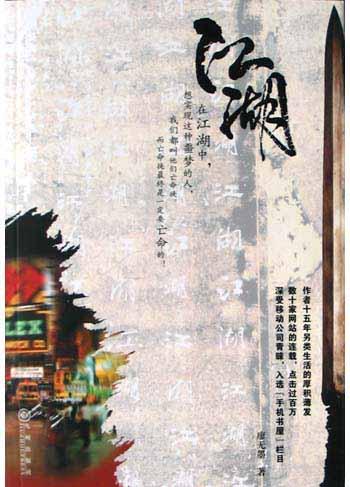 江湖
在江湖中，
想实现这种噩梦的人，
我们都叫他们亡命徒，
而亡命徒最终是一定要亡命的！
作者十五年另类生活的厚积薄发
数十家网站的连载，点击过百万
深受移动公司青睐，入选「手机书屋」栏目
廖无墨 著
LEX